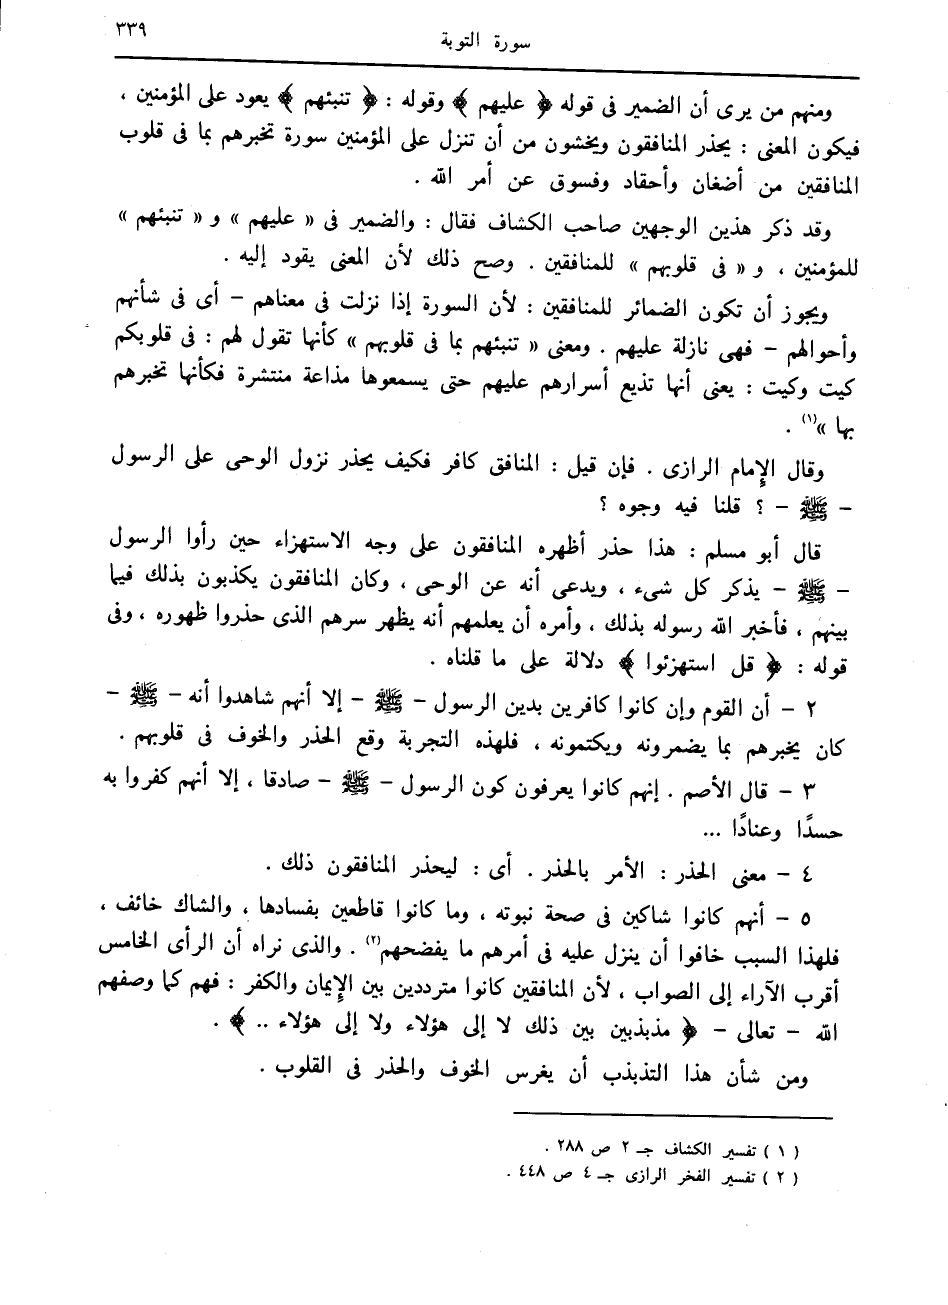 ٣٣٩
سورة التوبة
ومنهم من يرى أن الضمير فى قوله ﴿ عليهم ﴾ وقوله : ﴿ تنبئهم ﴾ يعود على المؤمنين ،
فيكون المعنى : يحذر المنافقون ويخشون من أن تنزل على المؤمنين سورة تخبرهم بما فى قلوب
المنافقين من أضغان وأحقاد وفسوق عن أمر الله .
وقد ذكر هذين الوجهين صاحب الكشاف فقال : والضمير فى « عليهم » و « تنبئهم »
للمؤمنين ، و « فى قلوبهم » للمنافقين . وصح ذلك لأن المعنى يقود إليه .
ويجوز أن تكون الضمائر للمنافقين : لأن السورة إذا نزلت فى معناهم – أى فى شأنهم
وأحوالهم – فهى نازلة عليهم . ومعنى « تنبئهم بما فى قلوبهم » كأنها تقول لهم : فى قلوبكم
كيت وكيت : يعنى أنها تذيع أسرارهم عليهم حتى يسمعوها مذاعة منتشرة فكأنها تخبرهم
بها »(١) .
وقال الإمام الرازى . فإن قيل : المنافق كافر فكيف يحذر نزول الوحى على الرسول
– ﷺ – ؟ قلنا فيه وجوه ؟
قال أبو مسلم : هذا حذر أظهره المنافقون على وجه الاستهزاء حين رأوا الرسول
– ﷺ – يذكر كل شىء ، ويدعى أنه عن الوحى ، وكان المنافقون يكذبون بذلك فيما
بينهم ، فأخبر الله رسوله بذلك ، وأمره أن يعلمهم أنه يظهر سرهم الذى حذروا ظهوره ، وفى
قوله : ﴿ قل استهزئوا ﴾ دلالة على ما قلناه .
٢ – أن القوم وإن كانوا كافرين بدين الرسول – ﷺ – إلا أنهم شاهدوا أنه – ﷺ –
كان يخبرهم بما يضمرونه ويكتمونه ، فلهذه التجربة وقع الحذر والخوف فى قلوبهم .
٣ – قال الأصم . إنهم كانوا يعرفون كون الرسول – ﷺ – صادقا ، إلا أنهم كفروا به
حسدًا وعنادًا ...
٤ – معنى الحذر : الأمر بالحذر . أى : ليحذر المنافقون ذلك .
٥ – أنهم كانوا شاكين فى صحة نبوته ، وما كانوا قاطعين بفسادها ، والشاك خائف ،
فلهذا السبب خافوا أن ينزل عليه فى أمرهم ما يفضحهم(٢) . والذى نراه أن الرأى الخامس
أقرب الآراء إلى الصواب ، لأن المنافقين كانوا مترددين بين الإيمان والكفر : فهم كما وصفهم
الله – تعالى – ﴿ مذبذبين بين ذلك لا إلى هؤلاء ولا إلى هؤلاء .. ﴾ .
ومن شأن هذا التذبذب أن يغرس الخوف والحذر فى القلوب .
( ١ ) تفسير الكشاف جـ ٢ ص ٢٨٨ .
( ٢ ) تفسير الفخر الرازى جـ ٤ ص ٤٤٨ .